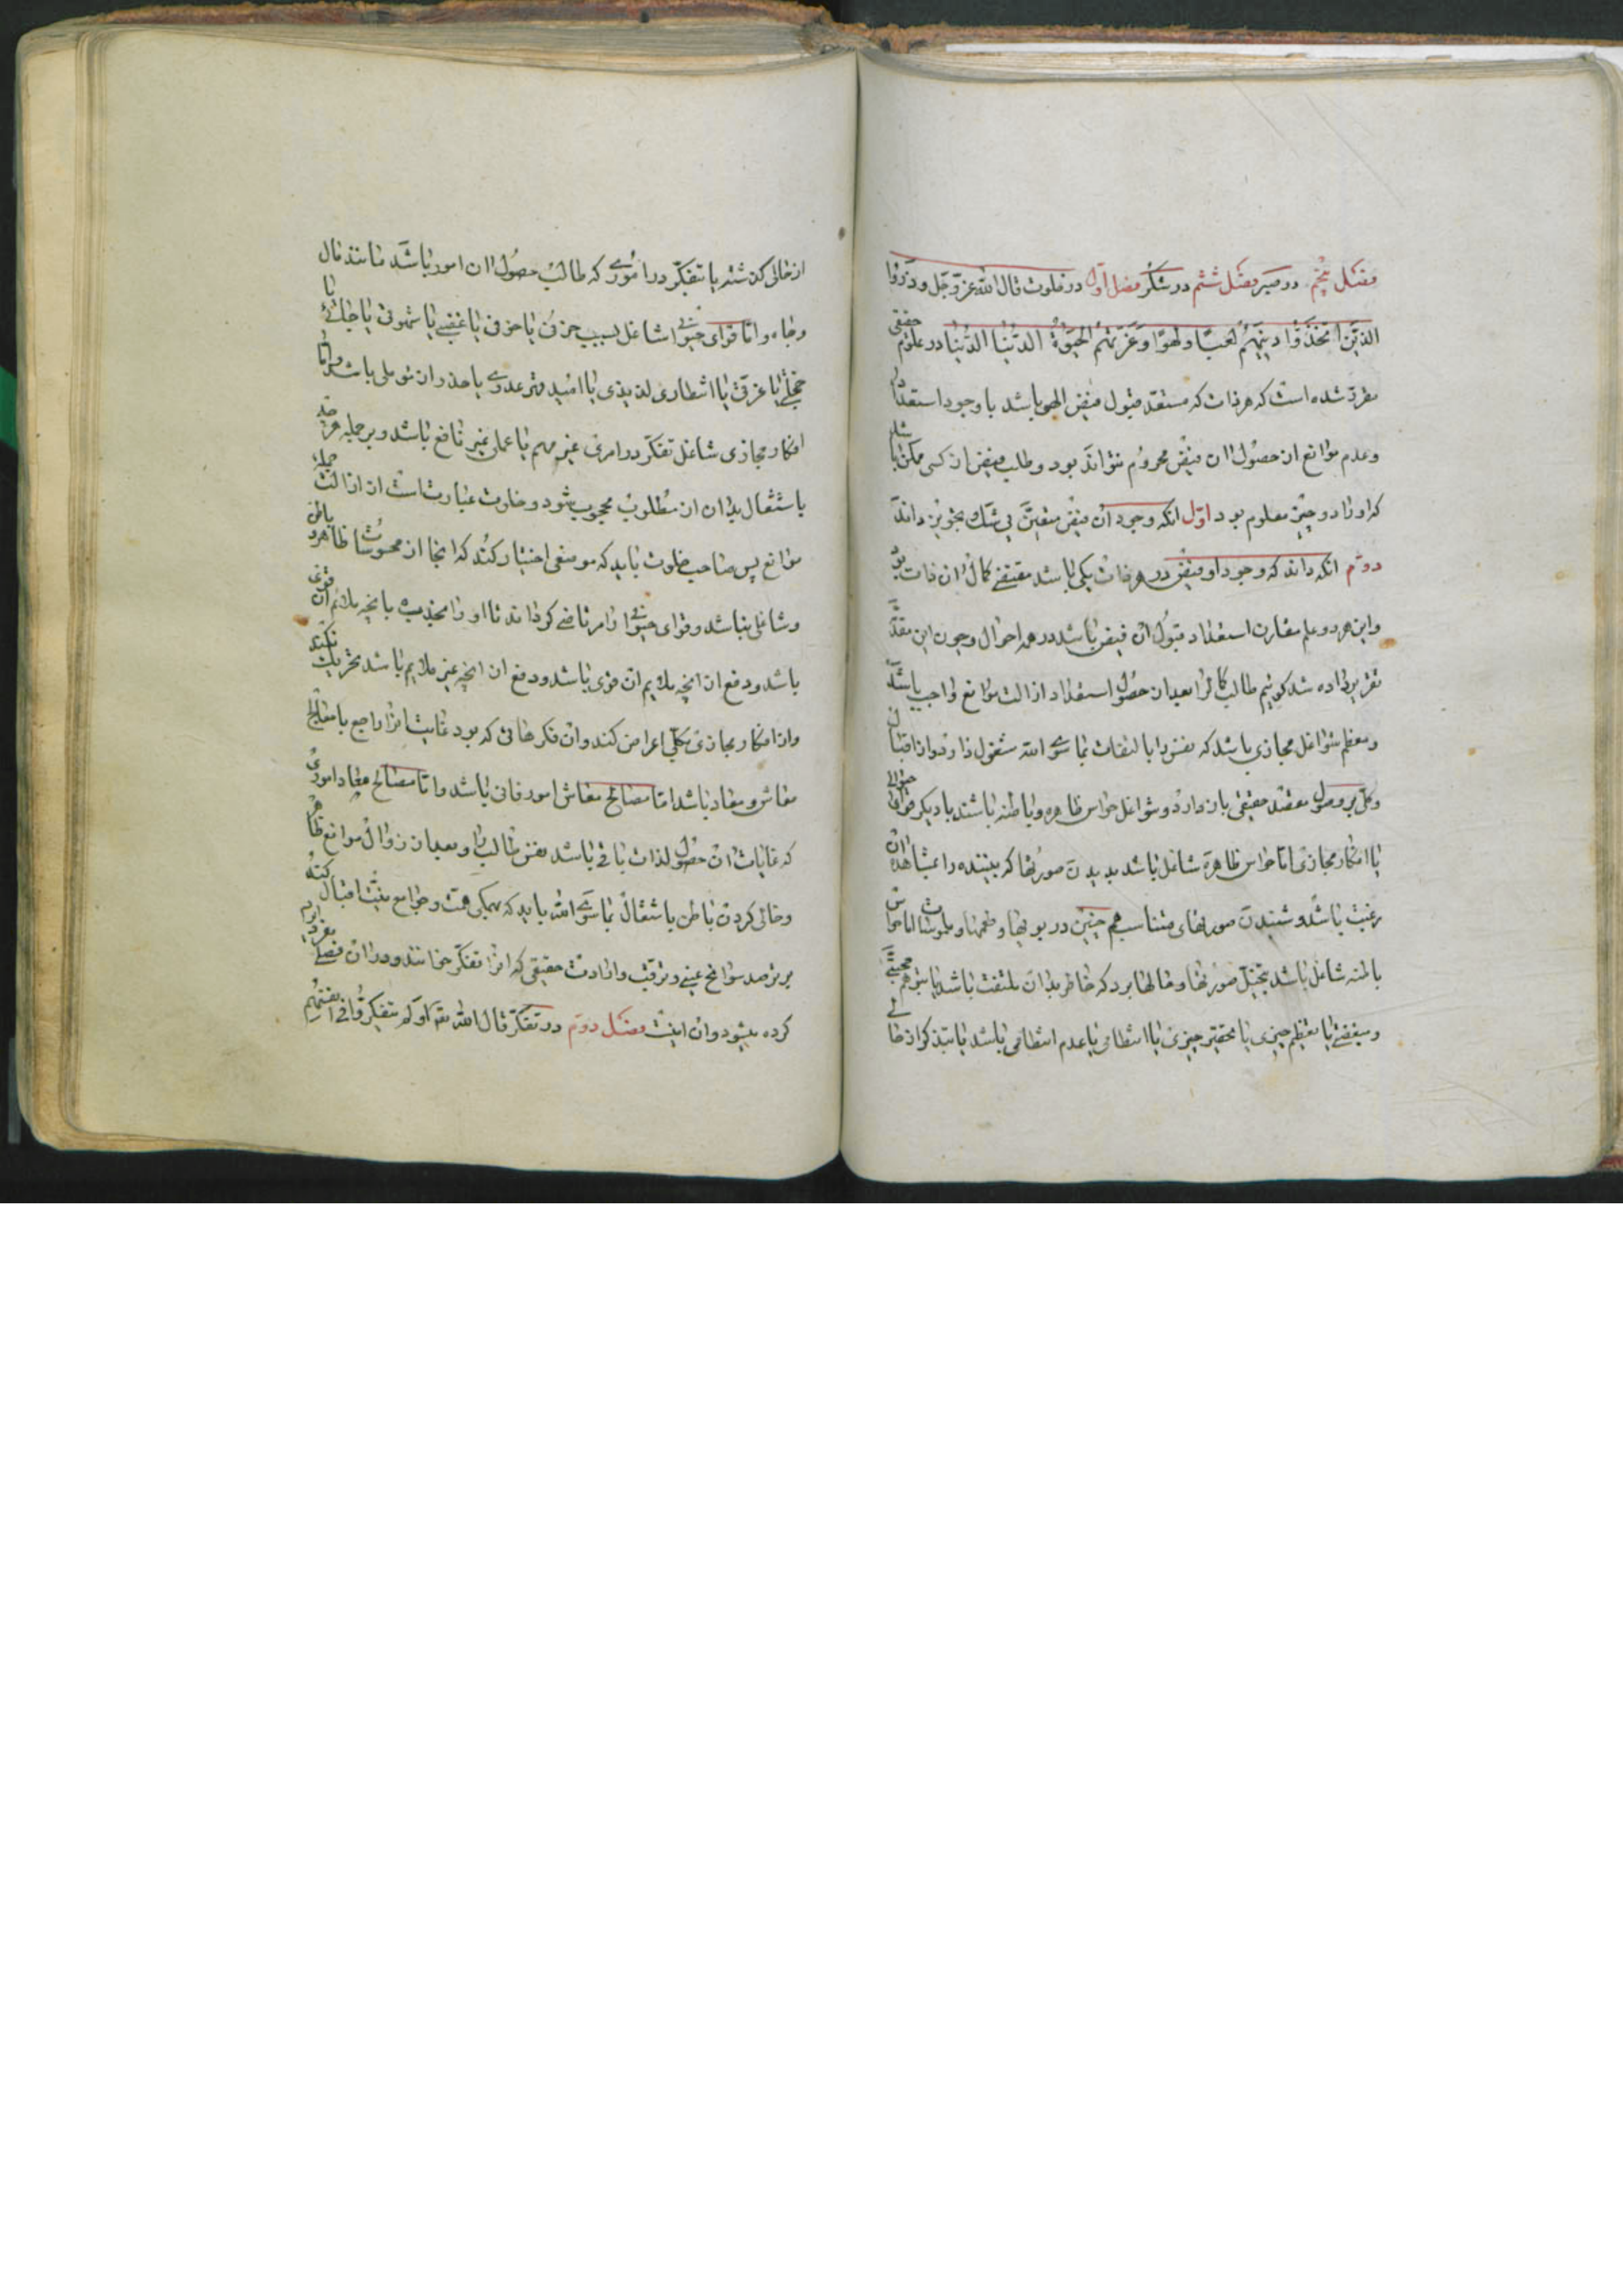 فصل پنجم در صبر فصل ششم در شکر فصل اول در خلوت قال الله عزّ و جلّ وذروا
الذین اتخذوا دینهم لعبًا ولهوًا وغرّتهم الحیوة الدنیا الدنیا در علوم حقیقی
مقرر شده است که هر ذات که مستعد قبول فیض الهی باشد با وجود استعداد
و عدم موانع از حصول ان فیض محروم نتواند بود و طلب فیض از کسی ممکن باشد
که او را دو چیز معلوم بود اوّل انکه وجود آن فیض متعین بی شک بتجویز داند
دوّم انکه داند که وجود او فیض در هر ذات یکی باشد مقتضی کمال ان ذات بود
و این هر دو علم مقارن استعداد قبول ان فیض باشد در همه احوال و چون این مقدّمه
تقریر داده شد کوئیم طالب کمال را بعد از حصول استعداد ازالت موانع واجب باشد
و معظم شواغل مجازی باشد که نفس را بالتفات بما سوی الله مشغول دارد و از اقبال
کلّی بر وصول مقصد حقیقی باز دارد و شواغل حواس ظاهره و یا باطنه باشند یا دیکر قوای حیوانی
یا افکار مجازی امّا حواس ظاهره شاغل باشد بدیدن صورتها که بیننده را بمشاهده ان
رغبت باشد و شنیدن صورتهای متناسب هم چنین در بویها و طعمها و ملموسات اما حواس
باطنه شاغل باشد بتخیّل صورتها و حالها برد که خاطر بدان ملتفت باشد یا بتوهم محبتی
و مبغضتی یا تعظیم چیزی یا تحقیر چیزی یا انتظامی یا عدم انتظامی باشد یا بتذکر از حالی
از حالی کذشته یا بتفکّر در اموری که طالب حصول ان امور باشد مانند مال
و جاه و امّا قوای حیوانی شاغل بسبب حزن یا خوفی یا غضبی یا شهوتی یا خیانتی یا
خجلتی یا غرقی یا انتظاری لذیذی یا امید قهر عدوی یا حذر از مولمی باشد و امّا
افکار مجازی شاغل تفکّر در امری غیر مهم یا علمی غیر نافع باشد و بر جمله هر چه
باشتغال بدان از مطلوب محجوب شود و خلوت عبارت است از ازالت جمله
موانع پس صاحب خلوت باید که موضعی اختیار کند که انجا از محسوسات ظاهر و باطن
شاغلی نباشد و قوای حیوانی را مرتاض کرداند تا او را بجذب بانچه ملایم ان قوی
باشد و دفع از انچه ملایم ان قوی باشد و دفع ان انچه غیر ملایم باشد تحریک نکند
و از افکار مجازی بکلّی اعراض کند و ان فکرهائی که بود غایت انرا راجع با مصالح
معاش و معاد باشد امّا مصالح معاش امور فانی باشد و امّا مصالح معاد اموری
که غایات ان حصول لذات باقی باشد نفس طالب را و بعد از زوال موانع ظاهر
و خالی کردن باطن باشتغال بما سوی الله باید که بهمکی همت و جوامع نیت اقبال کند
بر ترصد سوانح غیبی و ترقب واردات حقیقی که انرا تفکّر خوانند و در ان فصلی مفرد ایراد
کرده میشود و ان اینست فصل دوّم در تفکّر قال الله تعه اولم یتفکّروا فی انفسهم